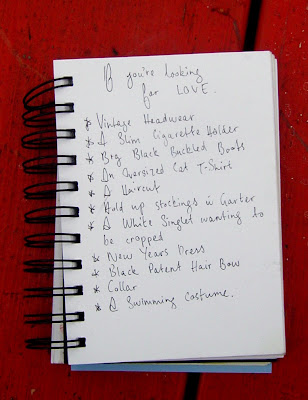 If you're looking
for LOVE.
* Vintage Headwear
* A Slim Cigarette Holder
* Big Black Buckled Boots
* An Oversized Cat T-Shirt
* A Haircut
* Hold up stockings & Garter
* A White Singlet wanting to
be cropped
* New Years Dress
* Black Patent Hair Bow
* Collar
* A Swimming Costume.